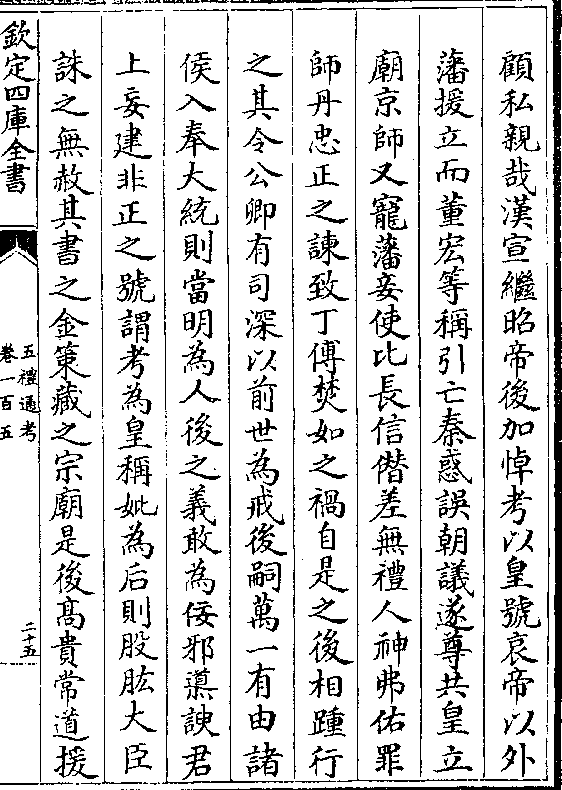 顧私親哉漢宣繼昭帝後加悼考以皇號哀帝以外
藩援立而董宏等稱引亡秦惑誤朝議遂尊共皇立
廟京師又寵藩妾使比長信僣差無禮人神弗佑罪
師丹忠正之諫致丁傅焚如之禍自是之後相踵行
之其令公卿有司深以前世為戒後嗣萬一有由諸
侯入奉大統則當明為人後之義敢為佞邪導諛君
上妄建非正之號謂考為皇稱妣為后則股肱大臣
誅之無赦其書之金策藏之宗廟是後高貴常道援
欽定四庫全書
五禮通考
卷一百五
二十五